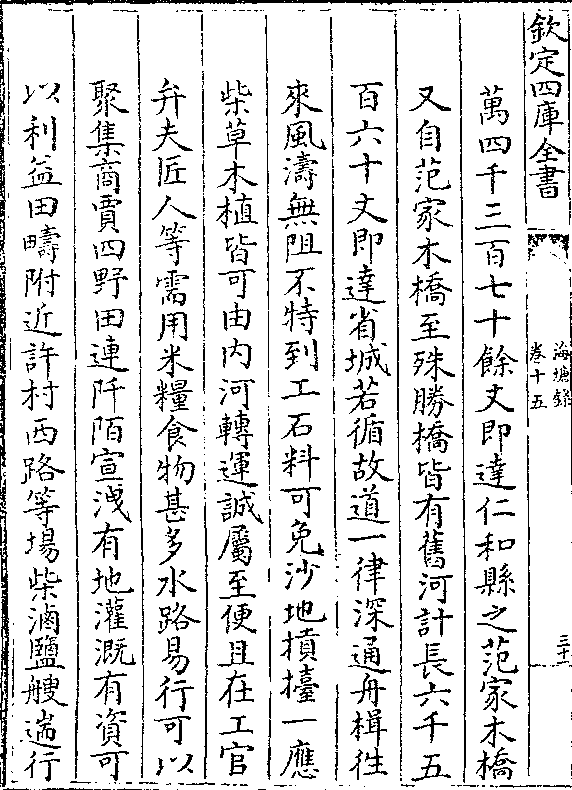 欽定四庫全書
海塘録
卷十五
三十
萬四千三百七十餘丈即達仁和縣之范家木橋
又自范家木橋至殊勝橋皆有舊河計長六千五
百六十丈即達省城若循故道一律深通舟楫往
來風濤無阻不特到工石料可免沙地摃擡一應
柴草木植皆可由内河轉運誠屬至便且在工官
弁夫匠人等需用米糧食物甚多水路易行可以
聚集商賈四野田連阡陌宣洩有地灌溉有資可
以利益田疇附近許村西路等場柴滷鹽艘遄行